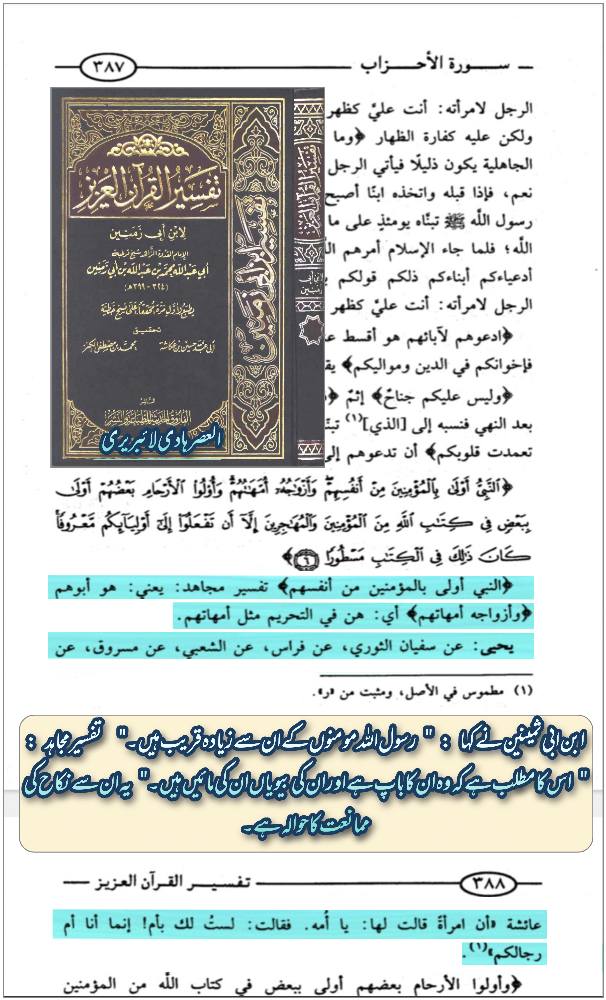 سورة الأحزاب
٣٨٧
الرجل لامرأته: أنت عليَّ كظهر
ولكن عليه كفارة الظهار ﴿وما
الجاهلية يكون ذليلًا فيأتي الرجل
نعم، فإذا قبله واتخذه ابنًا أصبح
رسول الله ﷺ تبنَّاه يومئذٍ على ما
الله؛ فلما جاء الإسلام أمرهم
أدعياءكم أبناءكم ذلكم قولكم
الرجل لامرأته: أنت عليَّ كظهر
﴿ادعوهم لآبائهم هو أقسط
فإخوانكم في الدين ومواليكم﴾
﴿وليس عليكم جناح﴾ إثمٌ
بعد النهي فنسبه إلى [الذي](١)
تعمدت قلوبكم﴾ أن تدعوهم إلى
تفسير القرآن العزيز
لابن أبي زمنين
أبي عبد الله محمد بن عبد الله بن أبي زمنين
(٣٢٤-٣٩٩هـ)
تحقيق
أبي عبد الله حسين بن عكاشة
محمد بن مصطفى الكنز
العصر ہادی لائبریری
﴿النَّبِيُّ أَوْلَى بِالْمُؤْمِنِينَ مِنْ أَنْفُسِهِمْ وَأَزْوَاجُهُ أُمَّهَاتُهُمْ وَأُولُوا الْأَرْحَامِ بَعْضُهُمْ أَوْلَى
بِبَعْضٍ فِي كِتَابِ اللَّهِ مِنَ الْمُؤْمِنِينَ وَالْمُهَاجِرِينَ إِلَّا أَنْ تَفْعَلُوا إِلَى أَوْلِيَائِكُمْ مَعْرُوفًا
كَانَ ذَلِكَ فِي الْكِتَابِ مَسْطُورًا ٦﴾
﴿النبي أولى بالمؤمنين من أنفسهم﴾ تفسير مجاهد: يعني: هو أبوهم
﴿وأزواجه أمهاتهم﴾ أي: هن في التحريم مثل أمهاتهم.
يحيى: عن سفيان الثوري، عن فراس، عن الشعبي، عن مسروق، عن
(١) مطموس في الأصل، ومثبت من «ر».
ابن ابی ثمینین نے کہا : " رسول اللہ مومنوں کے ان سے زیادہ قریب ہیں۔" تفسیر مجاہد :
" اس کا مطلب ہے کہ وہ ان کا باپ ہے اور ان کی بیویاں ان کی مائیں ہیں۔" یہ ان سے نکاح کی
ممانعت کا حوالہ ہے۔
٣٨٨
تفسير القرآن العزيز
عائشة «أن امرأةً قالت لها: يا أُمه. فقالت: لستُ لك بأم! إنما أنا أم
رجالكم»(١).
﴿وأولوا الأرحام بعضهم أولى ببعض في كتاب الله من المؤمنين